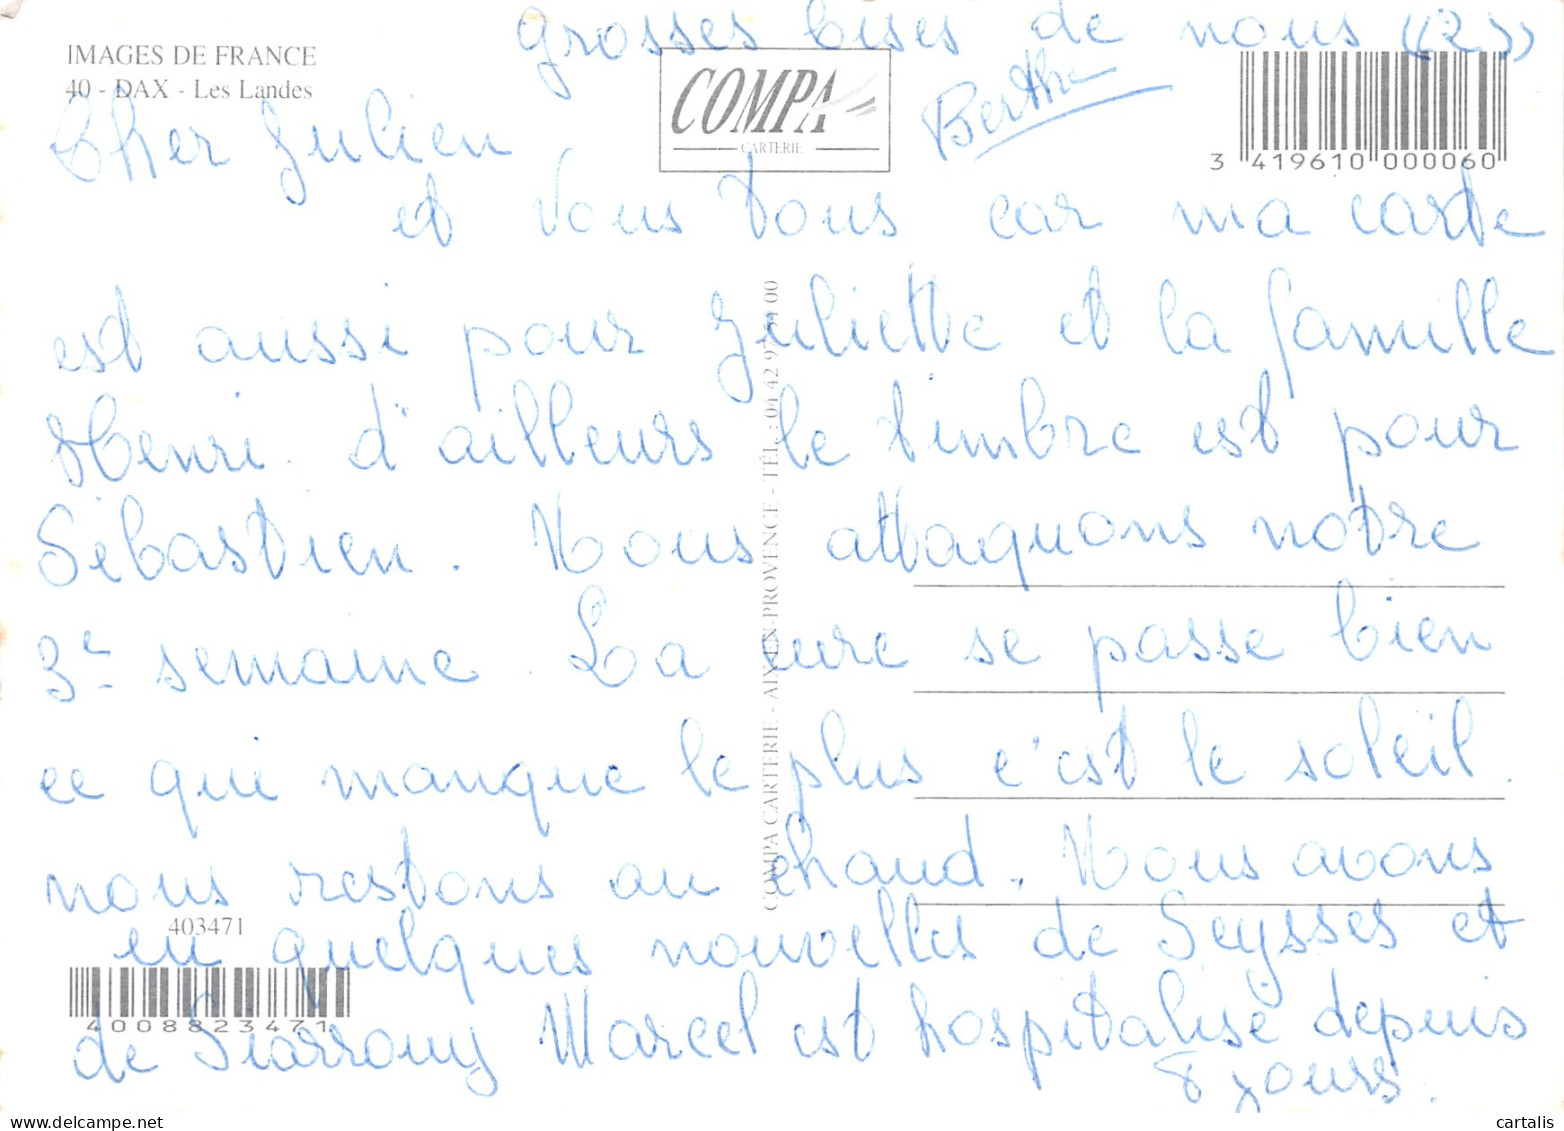 grosses bises de nous ((2))
IMAGES DE FRANCE
40 - DAX - Les Landes
COMPA
CARTERIE
Berthe
3 419610 000060
Cher Julien
et vous tous car ma carte
est aussi pour Juliette et la famille
Henri. d'ailleurs le timbre est pour
Sébastien. Nous attaquons notre
3e semaine. La cure se passe bien
ce qui manque le plus c'est le soleil.
nous restons au chaud. Nous avons
eu quelques nouvelles de Seysses et
de Marcel est hospitalisé depuis
8 jours.
COMPA CARTERIE - AIX-EN-PROVENCE - TÉL. : 04 42 97 00
403471
4008823471
cartalis